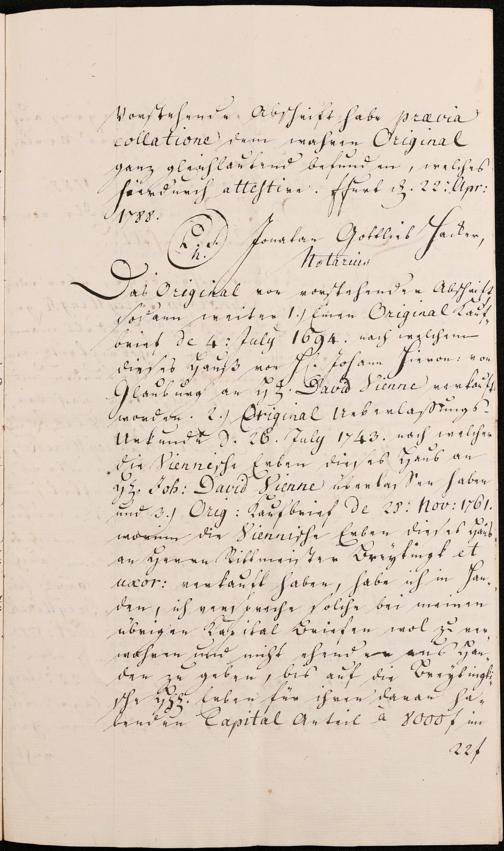 Vorstehende Abschrift habe prævia
collatione dem wahren Original
ganz gleichlautend befunden, welches
hierdurch attestire. Ffurt d. 22: Apr:
1788.
Jonatan Gottlieb Hacker,
Notarius
Das Original von vorstehender Abschrift
sodann weiter 1.) Einen Original Kauf-
brief de 4: July 1694. nach welchem
dieses Hauß von H: Johann Hieron: von
Glauburg an H: David Vienne verkauft
worden. 2.) Original Ueberlassungs-
Urkunde d. 26. July 1743. nach welcher
die Viennische Erben dieses Haus an
H: Joh: David Vienne überlassen haben
und 3.) Orig: Kaufbrief de 28: Nov: 1761.
worinn die Viennische Erben dieses Haus
an Herrn Rittmeister Breÿtingk et
uxor: verkauft haben, habe ich in Han-
den, ich verspreche solche bei meinen
übrigen Kapital Briefen wol zu ver-
wahren und nicht ehender aus Han-
den zu geben, bis auf die Breÿtingki-
sche Erben für ihren daran ha-
benden Capital Anteil à 8000f im
22f